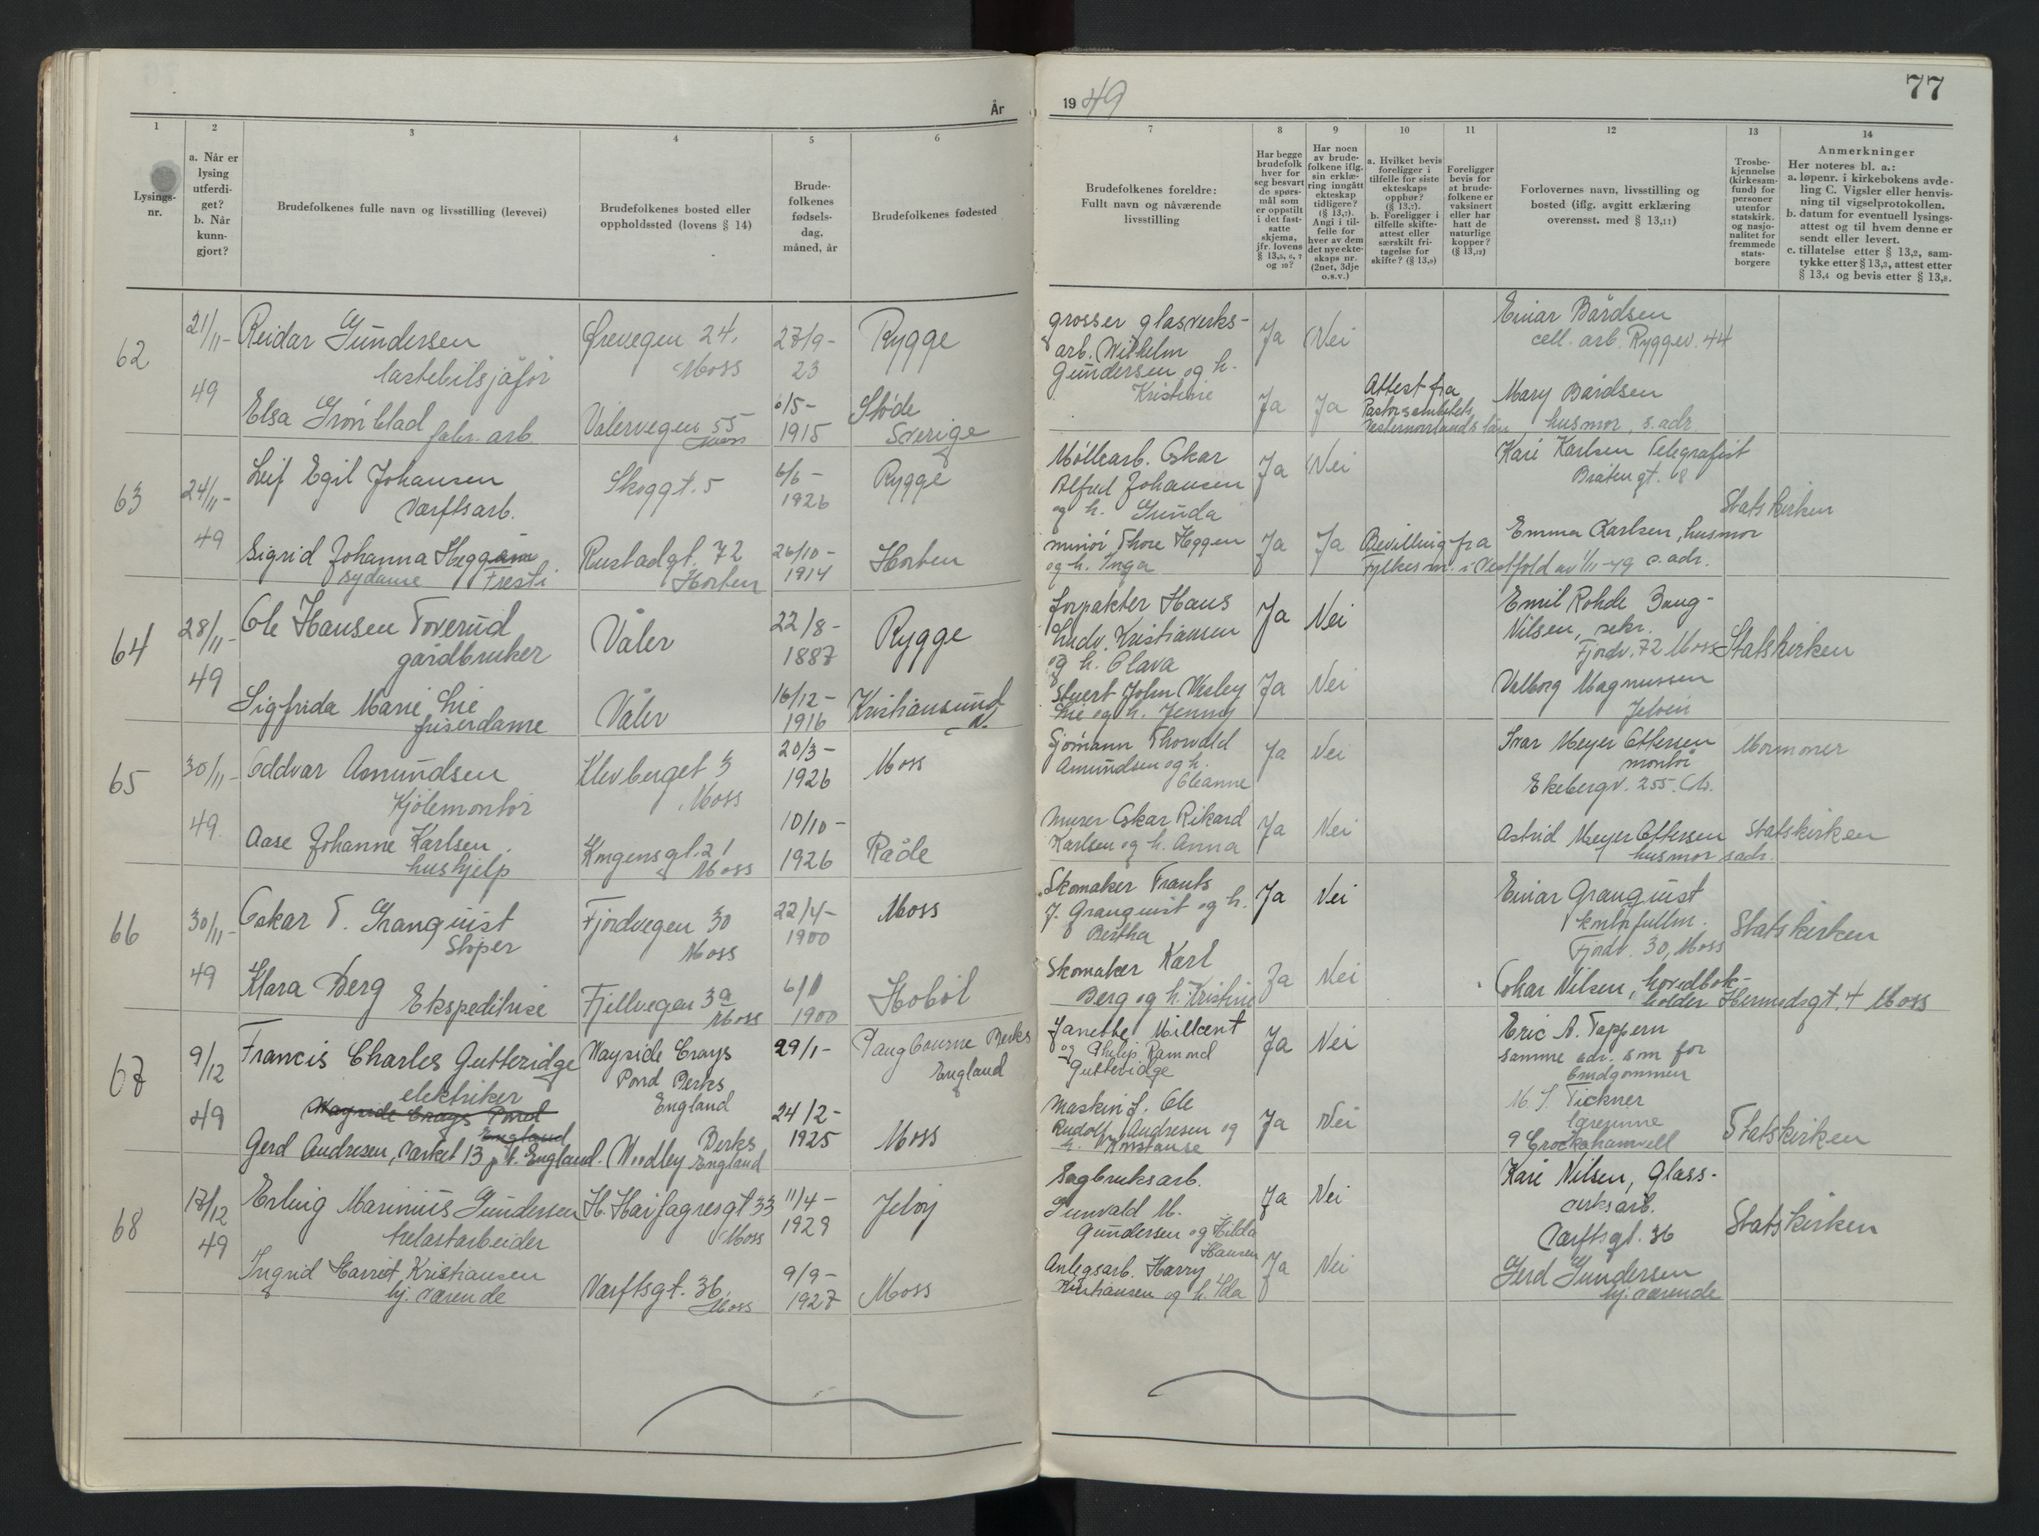 77
År
19 49
1
2
3
4
5
6
7
8
9
10
11
12
13
14
Lysings-
nr.
a. Når er
lysing
utferdi-
get?
b. Når
kunn-
gjort?
Brudefolkenes fulle navn og livsstilling (levevei)
Brudefolkenes bosted eller
oppholdssted (lovens § 14)
Brude-
folkenes
fødsels-
dag,
måned, år
Brudefolkenes fødested
Brudefolkenes foreldre:
Fullt navn og nåværende
livsstilling
Har begge
brudefolk
hver for
seg besvart
de spørs-
mål som
er oppstilt
i det fast-
satte
skjema,
jfr. lovens
§ 13,5, 6, 7
og 10?
Har noen
av brude-
folkene iflg.
sin erklæ-
ring inngått
ekteskap
tidligere?
(§ 13,7).
Angi i til-
felle for
hver av dem
det nye ekte-
skaps nr.
(2net, 3dje
o.s.v.)
a. Hvilket bevis
foreligger i
tilfelle for siste
ekteskaps
opphør?
(§ 13,7).
b. Foreligger i
tilfelle skifte-
attest eller
særskilt fri-
tagelse for
skifte? (§ 13,9)
Foreligger
bevis for
at brude-
folkene er
vaksinert
eller har
hatt de
naturlige
kopper?
(§ 13,12)
Forlovernes navn, livsstilling og
bosted (iflg. avgitt erklæring
overensst. med § 13,11)
Trosbe-
kjennelse
(kirkesam-
fund) for
personer
utenfor
statskirk.
og nasjo-
nalitet for
fremmede
stats-
borgere
Anmerkninger
Her noteres bl. a.:
a. løpenr. i kirkebokens avde-
ling C. Vigsler eller henvis-
ning til vigselprotokollen.
b. datum for eventuell lysings-
attest og til hvem denne er
sendt eller levert.
c. tillatelse etter § 13,2, sam-
tykke etter § 13,3, attest etter
§ 13,4 og bevis etter § 13,8.
62
21/11-
49
Reidar Gundersen
lastebilsjåfør
Ørevegen 24,
Moss
27/9-
23
Rygge
grosser glasverks-
arb. Wilhelm
Gundersen og h.
Kristine
Ja
Nei
Einar Bårdsen
cell. arb. Ryggev. 44
Elsa Grönblad
fabr. arb.
Vålervegen 55
Moss
6/5-
1915
Stöde
Sverige
Ja
Ja
Attest fra
Pastorsembetet
Västernorrlands län
Mary Bårdsen
husmor, s. adr.
63
24/11-
49
Leif Egil Johansen
Værftsarb.
Skoggt. 5
6/6-
1926
Rygge
Møllearb. Oskar
Alfred Johansen
og h. Gunda
Ja
Nei
Kari Karlsen Telegrafist
Bråtengt. 8
Statskirken
Sigrid Johanna Heggum
sydame Tresti
Rustadgt. 72
Horten
26/10-
1914
Horten
minør Thore Heggen
og h. Inga
Ja
Ja
Bevilling fra
Fylkesm. i Vestfold av 1/11-49
Emma Karlsen, husmor
s. adr.
64
28/11-
49
Ole Hansen Toverud
gårdbruker
Våler
22/8-
1887
Rygge
forpakter Hans
Ludv. Kristiansen
og h. Olava
Ja
Nei
Emil Rohde Bang-
Nilsen, sekr.
Fjordv. 72 Moss
Statskirken
Sigfrida Marie Lie
frisørdame
Våler
16/12-
1916
Kristiansund
N.
Stuert John Wesley
Lie og h. Jenny
Ja
Nei
Valborg Magnussen
Jeløy
65
30/11-
49.
Oddvar Amundsen
Kjølemontør
Klevberget 3
Moss
20/3-
1926
Moss
Sjømann Thorvald
Amundsen og h.
Oleanne
Ja
Nei
Ivar Meyer Ottersen
montør
Ekebergv. 255. Oslo
Mormoner
Aase Johanne Karlsen
hushjelp
Kongensgt. 21
Moss
10/10-
1926
Råde
murer Oskar Rikard
Karlsen og h. Anna
Ja
Nei
Astrid Meyer Ottersen
husmor s adr.
Statskirken
66
30/11-
49
Oskar T. Granquist
Støper
Fjordvegen 30
Moss
22/4-
1900
Moss
Skomaker Frants
J. Granquist og h.
Bertha
Ja
Nei
Einar Granquist
kontorfullm.
Fjordv. 30, Moss
Statskirken
Klara Berg
Ekspeditrise
Fjellvegen 3a
Moss
1900
Hobøl
Skomaker Karl
Berg og h. Kristine
Ja
Nei
Oskar Nilsen, hovedbok-
holder Hermodsgt. 4 Moss
67
9/12
49
Francis Charles Gutteridge
elektriker
Wayside Crays Pond
England
Wayside Crays
Pond Berks
England
29/1-
Pangbourne Berks
England
Janette Millcent
og Philip Ramond
Gutteridge
Ja
Nei
Eric A. Tappern
samme adr. som for
brudgommen
Gerd Andresen, Værket 13 p.t. England.
Woodley Berks
England
24/2-
1925
Moss
Maskinf. Ole
Rudolf Andresen og
h. Konstanse
Ja
Nei
M. S. Tickner
lærerinne
9 Crockhamwell
Statskirken
68
17/12
49
Erling Marinius Gundersen
trelastarbeider
H. Hårfagresgt 33
Moss
11/4-
1929
Jeløy
Sagbruksarb.
Gunvald M.
Gundersen og Hilda
Hansen
Ja
Nei
Kari Nilsen, Glass-
verksarb.
Værftsgt. 36
Statskirken
Ingrid Harriet Kristiansen
hj. værende
Værftsgt. 36,
Moss
9/9-
1927
Moss
Anlegsarb. Harry
Kristiansen og h. Ida
Ja
Nei
Gerd Gundersen
hj. værende